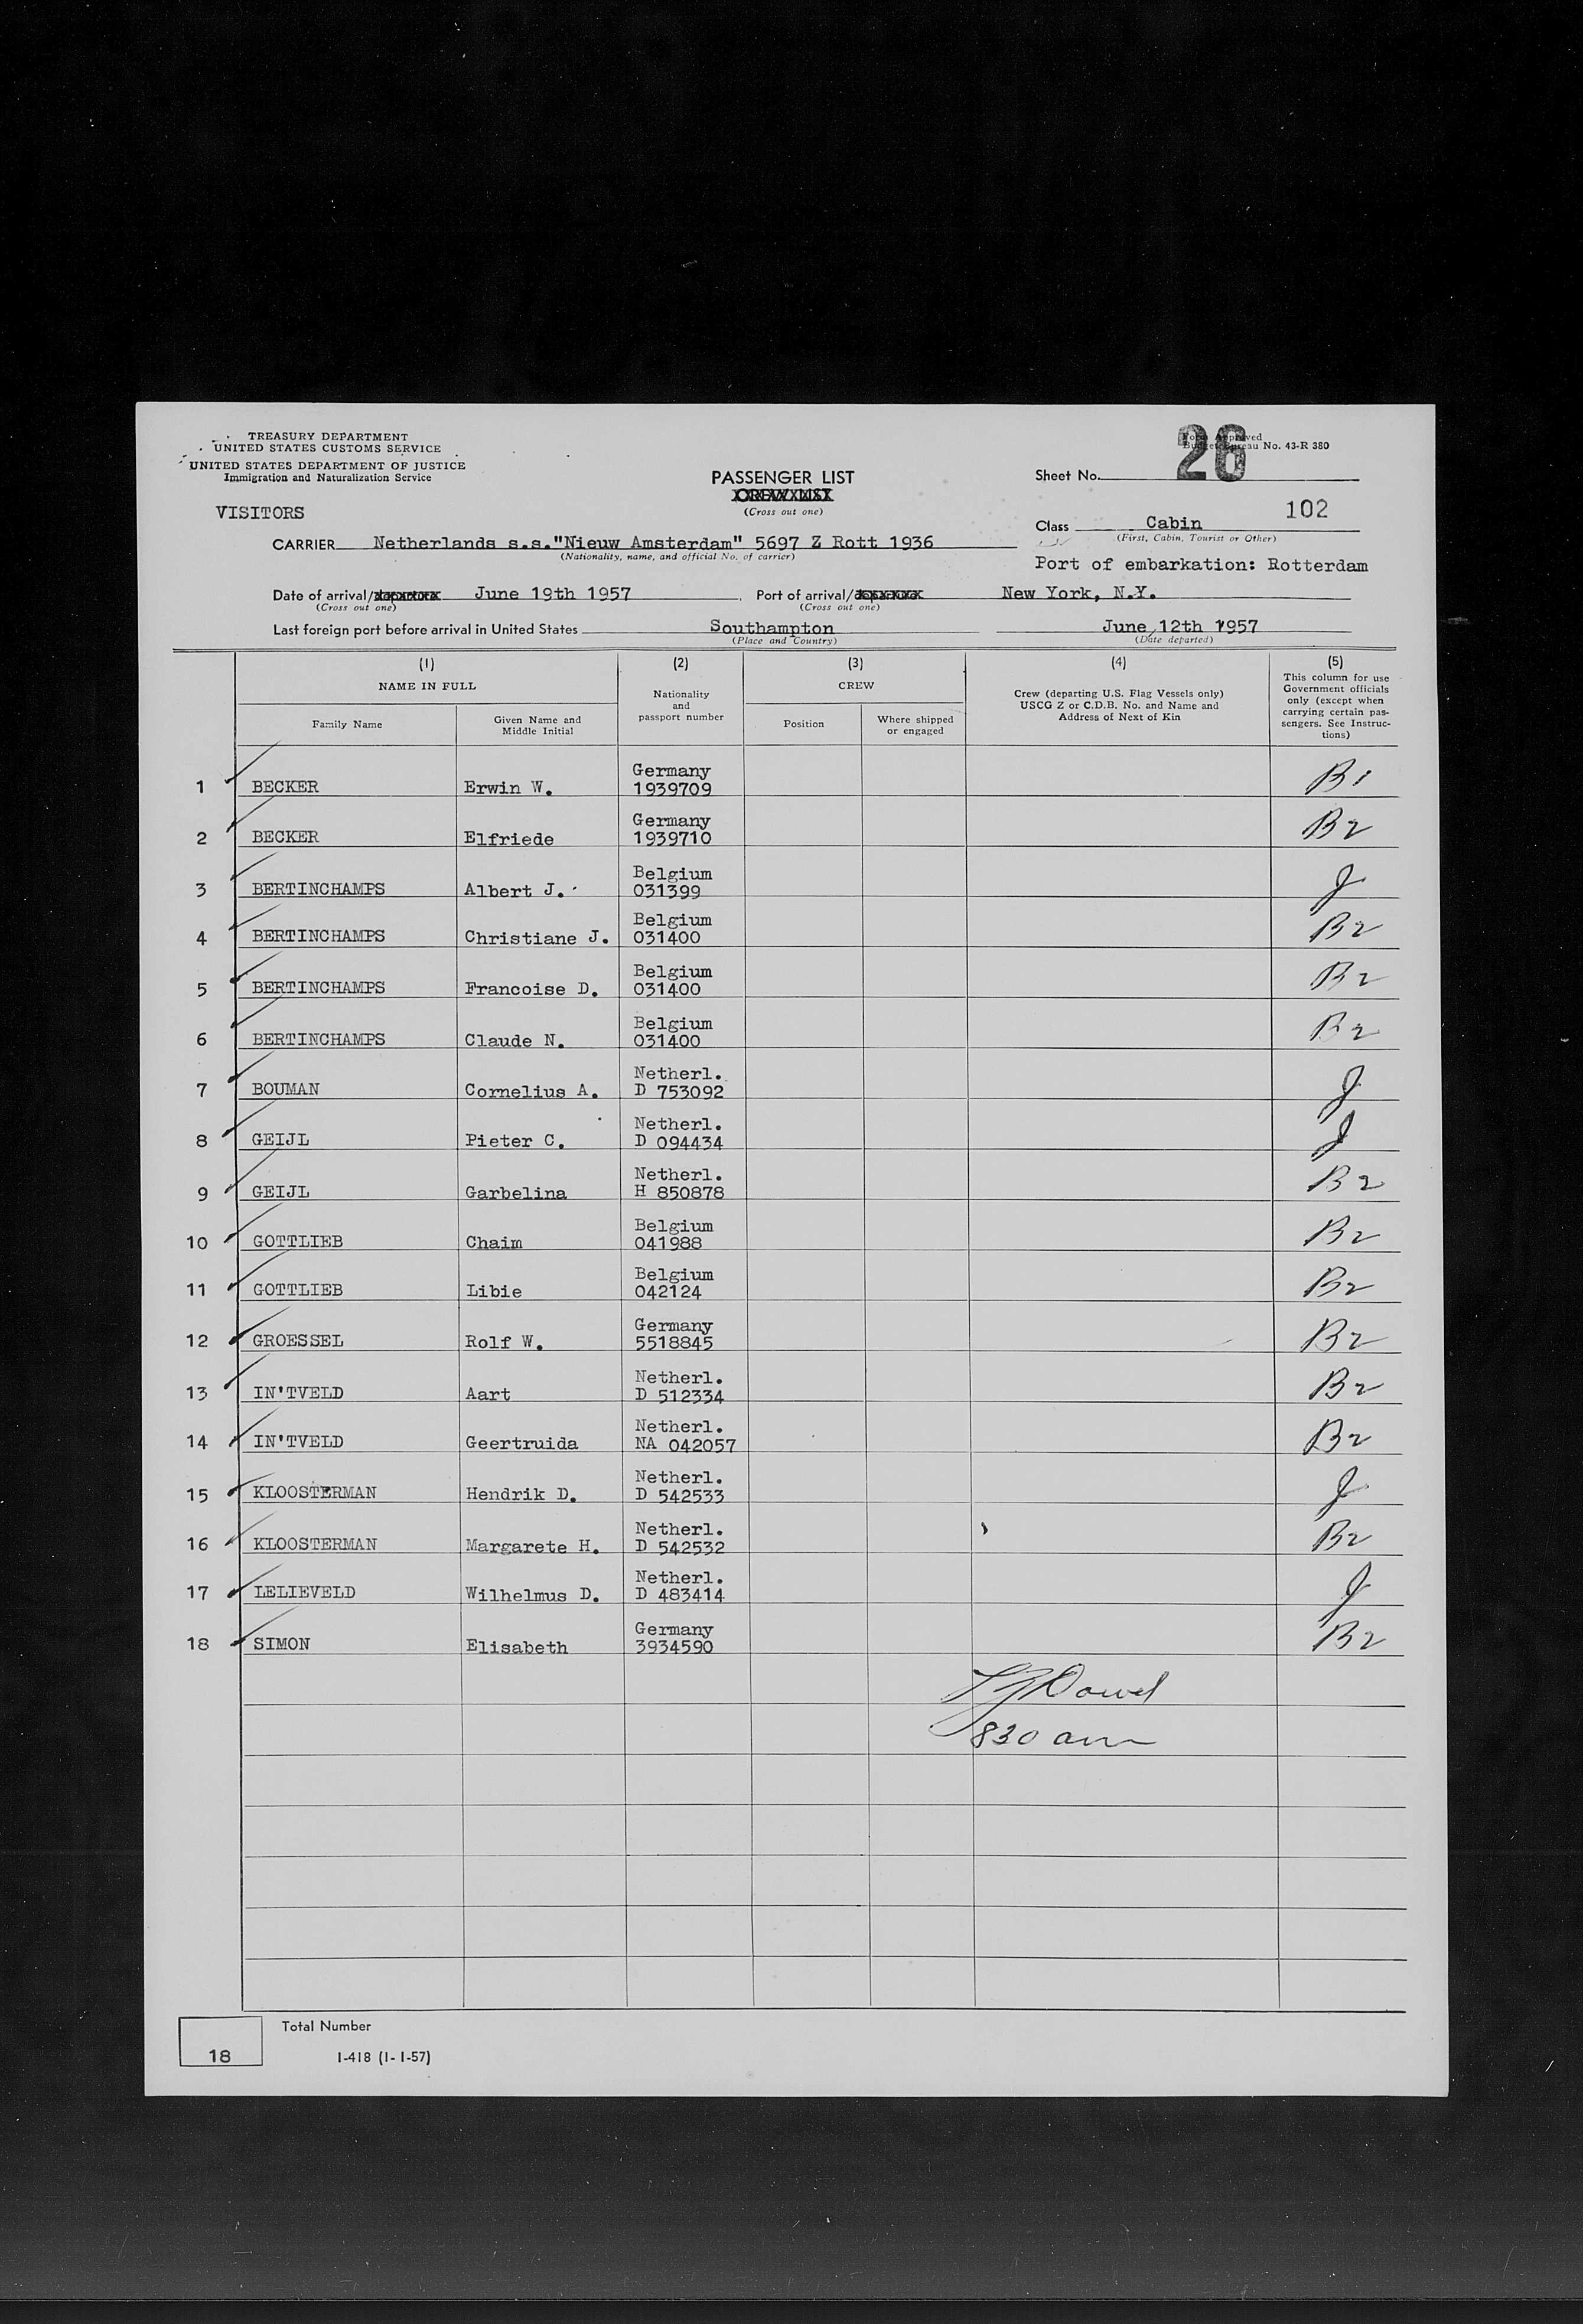 TREASURY DEPARTMENT
UNITED STATES CUSTOMS SERVICE
UNITED STATES DEPARTMENT OF JUSTICE
Immigration and Naturalization Service
VISITORS
PASSENGER LIST
CREW LIST
(Cross out one)
Form Approved
Budget Bureau No. 43-R 380
Sheet No. 26
102
Class Cabin
(First, Cabin, Tourist or Other)
CARRIER Netherlands s.s."Nieuw Amsterdam" 5697 Z Rott 1936
(Nationality, name, and official No. of carrier)
Port of embarkation: Rotterdam
Date of arrival/departure June 19th 1957, Port of arrival/departure New York, N.Y.
(Cross out one) (Cross out one)
Last foreign port before arrival in United States Southampton June 12th 1957
(Place and Country) (Date departed)
(1) (2) (3) (4) (5)
NAME IN FULL
Family Name
Given Name and Middle Initial
Nationality and passport number
CREW
Position
Where shipped or engaged
Crew (departing U.S. Flag Vessels only)
USCG Z or C.D.B. No. and Name and
Address of Next of Kin
This column for use
Government officials
only (except when
carrying certain pas-
sengers. See Instruc-
tions)
1 BECKER Erwin W. Germany 1939709 B1
2 BECKER Elfriede Germany 1939710 B2
3 BERTINCHAMPS Albert J. Belgium 031399 J
4 BERTINCHAMPS Christiane J. Belgium 031400 B2
5 BERTINCHAMPS Francoise D. Belgium 031400 B2
6 BERTINCHAMPS Claude N. Belgium 031400 B2
7 BOUMAN Cornelius A. Netherl. D 753092 J
8 GEIJL Pieter C. Netherl. D 094434 J
9 GEIJL Garbelina Netherl. H 850878 B2
10 GOTTLIEB Chaim Belgium 041988 B2
11 GOTTLIEB Libie Belgium 042124 B2
12 GROESSEL Rolf W. Germany 5518845 B2
13 IN'TVELD Aart Netherl. D 512334 B2
14 IN'TVELD Geertruida Netherl. NA 042057 B2
15 KLOOSTERMAN Hendrik D. Netherl. D 542533 J
16 KLOOSTERMAN Margarete H. Netherl. D 542532 B2
17 LELIEVELD Wilhelmus D. Netherl. D 483414 J
18 SIMON Elisabeth Germany 3934590 B2
830 am
Total Number
18
I-418 (1-1-57)